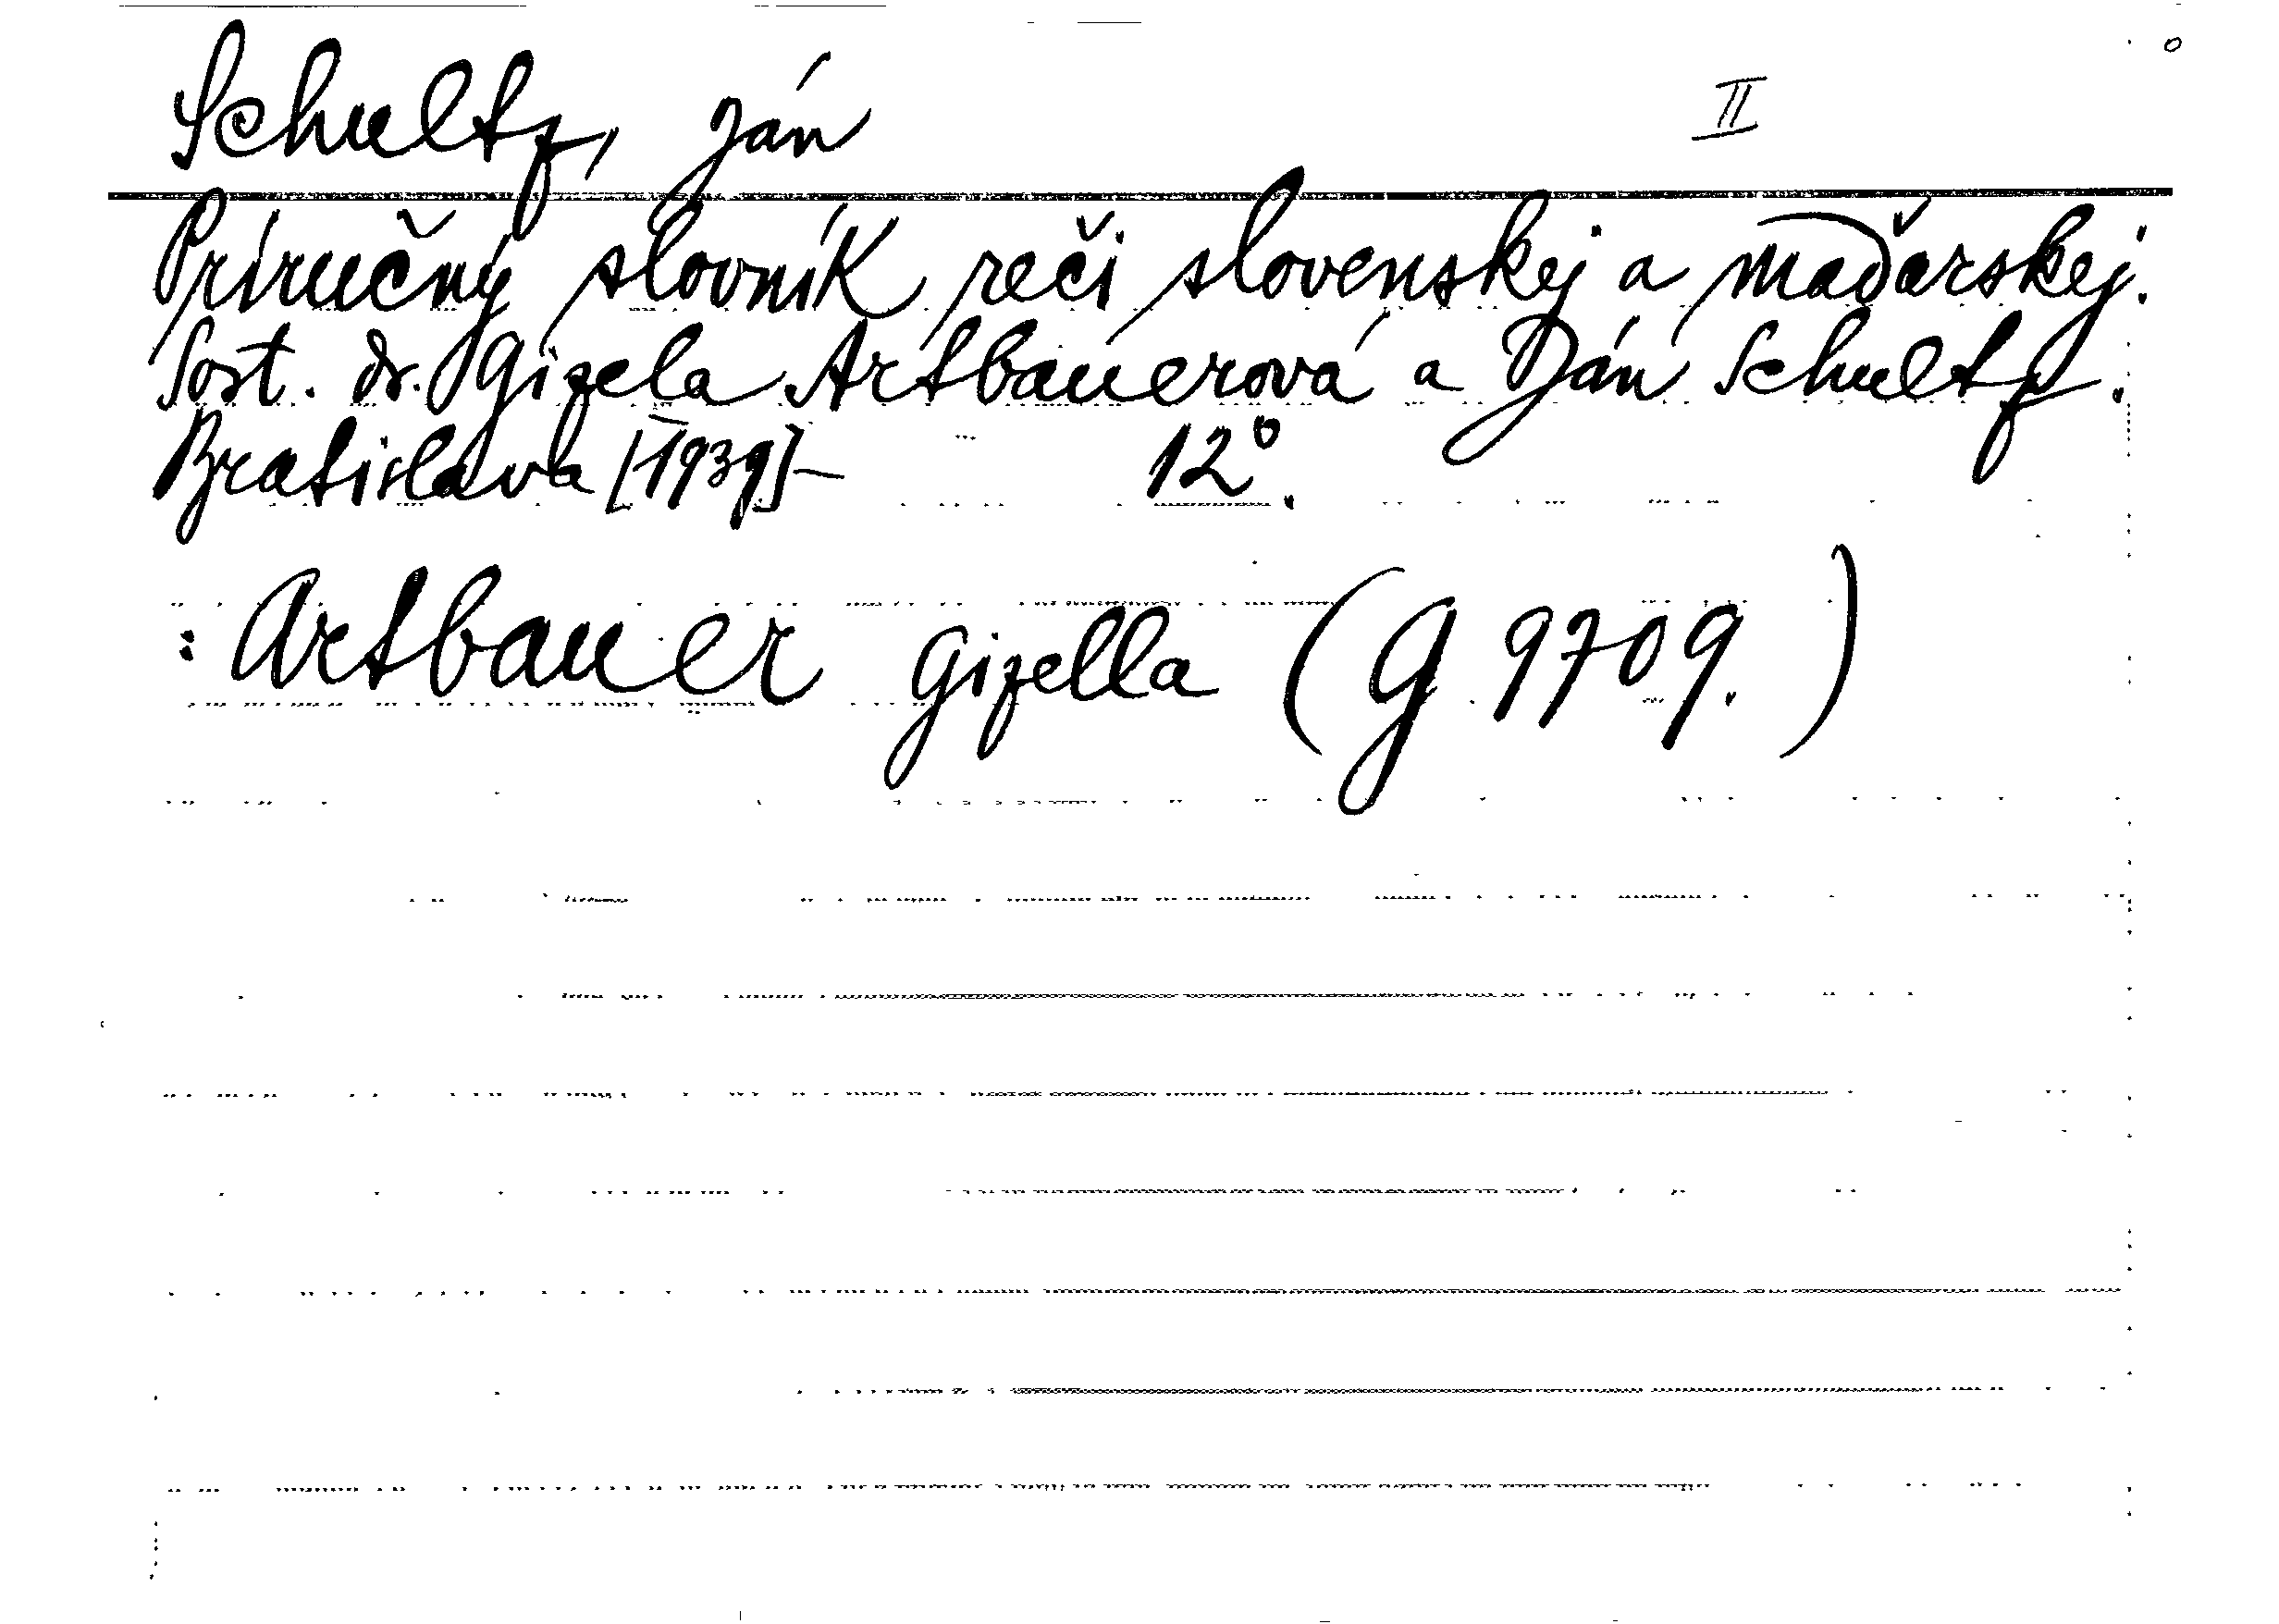 Schultz, Ján II
Príručný slovník reči slovenskej a maďarskej.
Sost. dr. Gizela Artbauerová a Ján Schultz.
Bratislava [1939]– 12°.
: Artbauer Gizella (G 9709.)